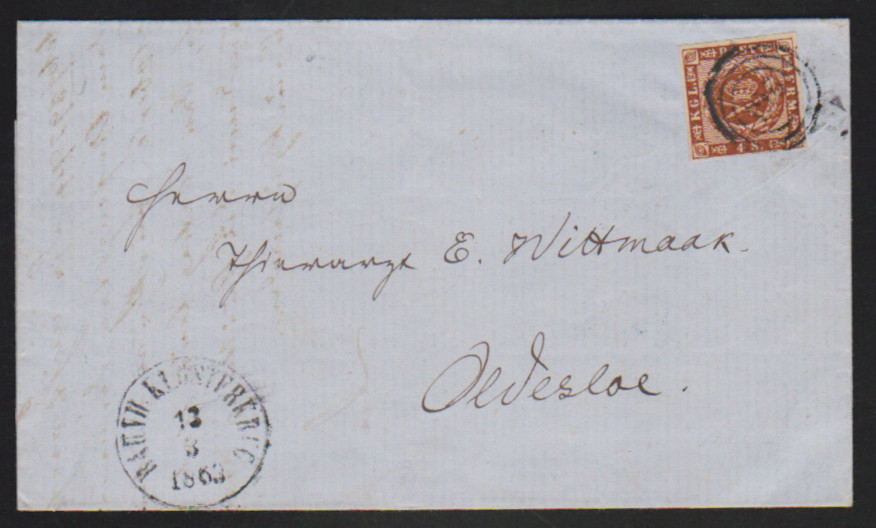 KGL. POST FRM.
4 S.
Herrn
Thierarzt E. Wittmaak.
Oldesloe.
KLOSTERKRUG
13
3
1863